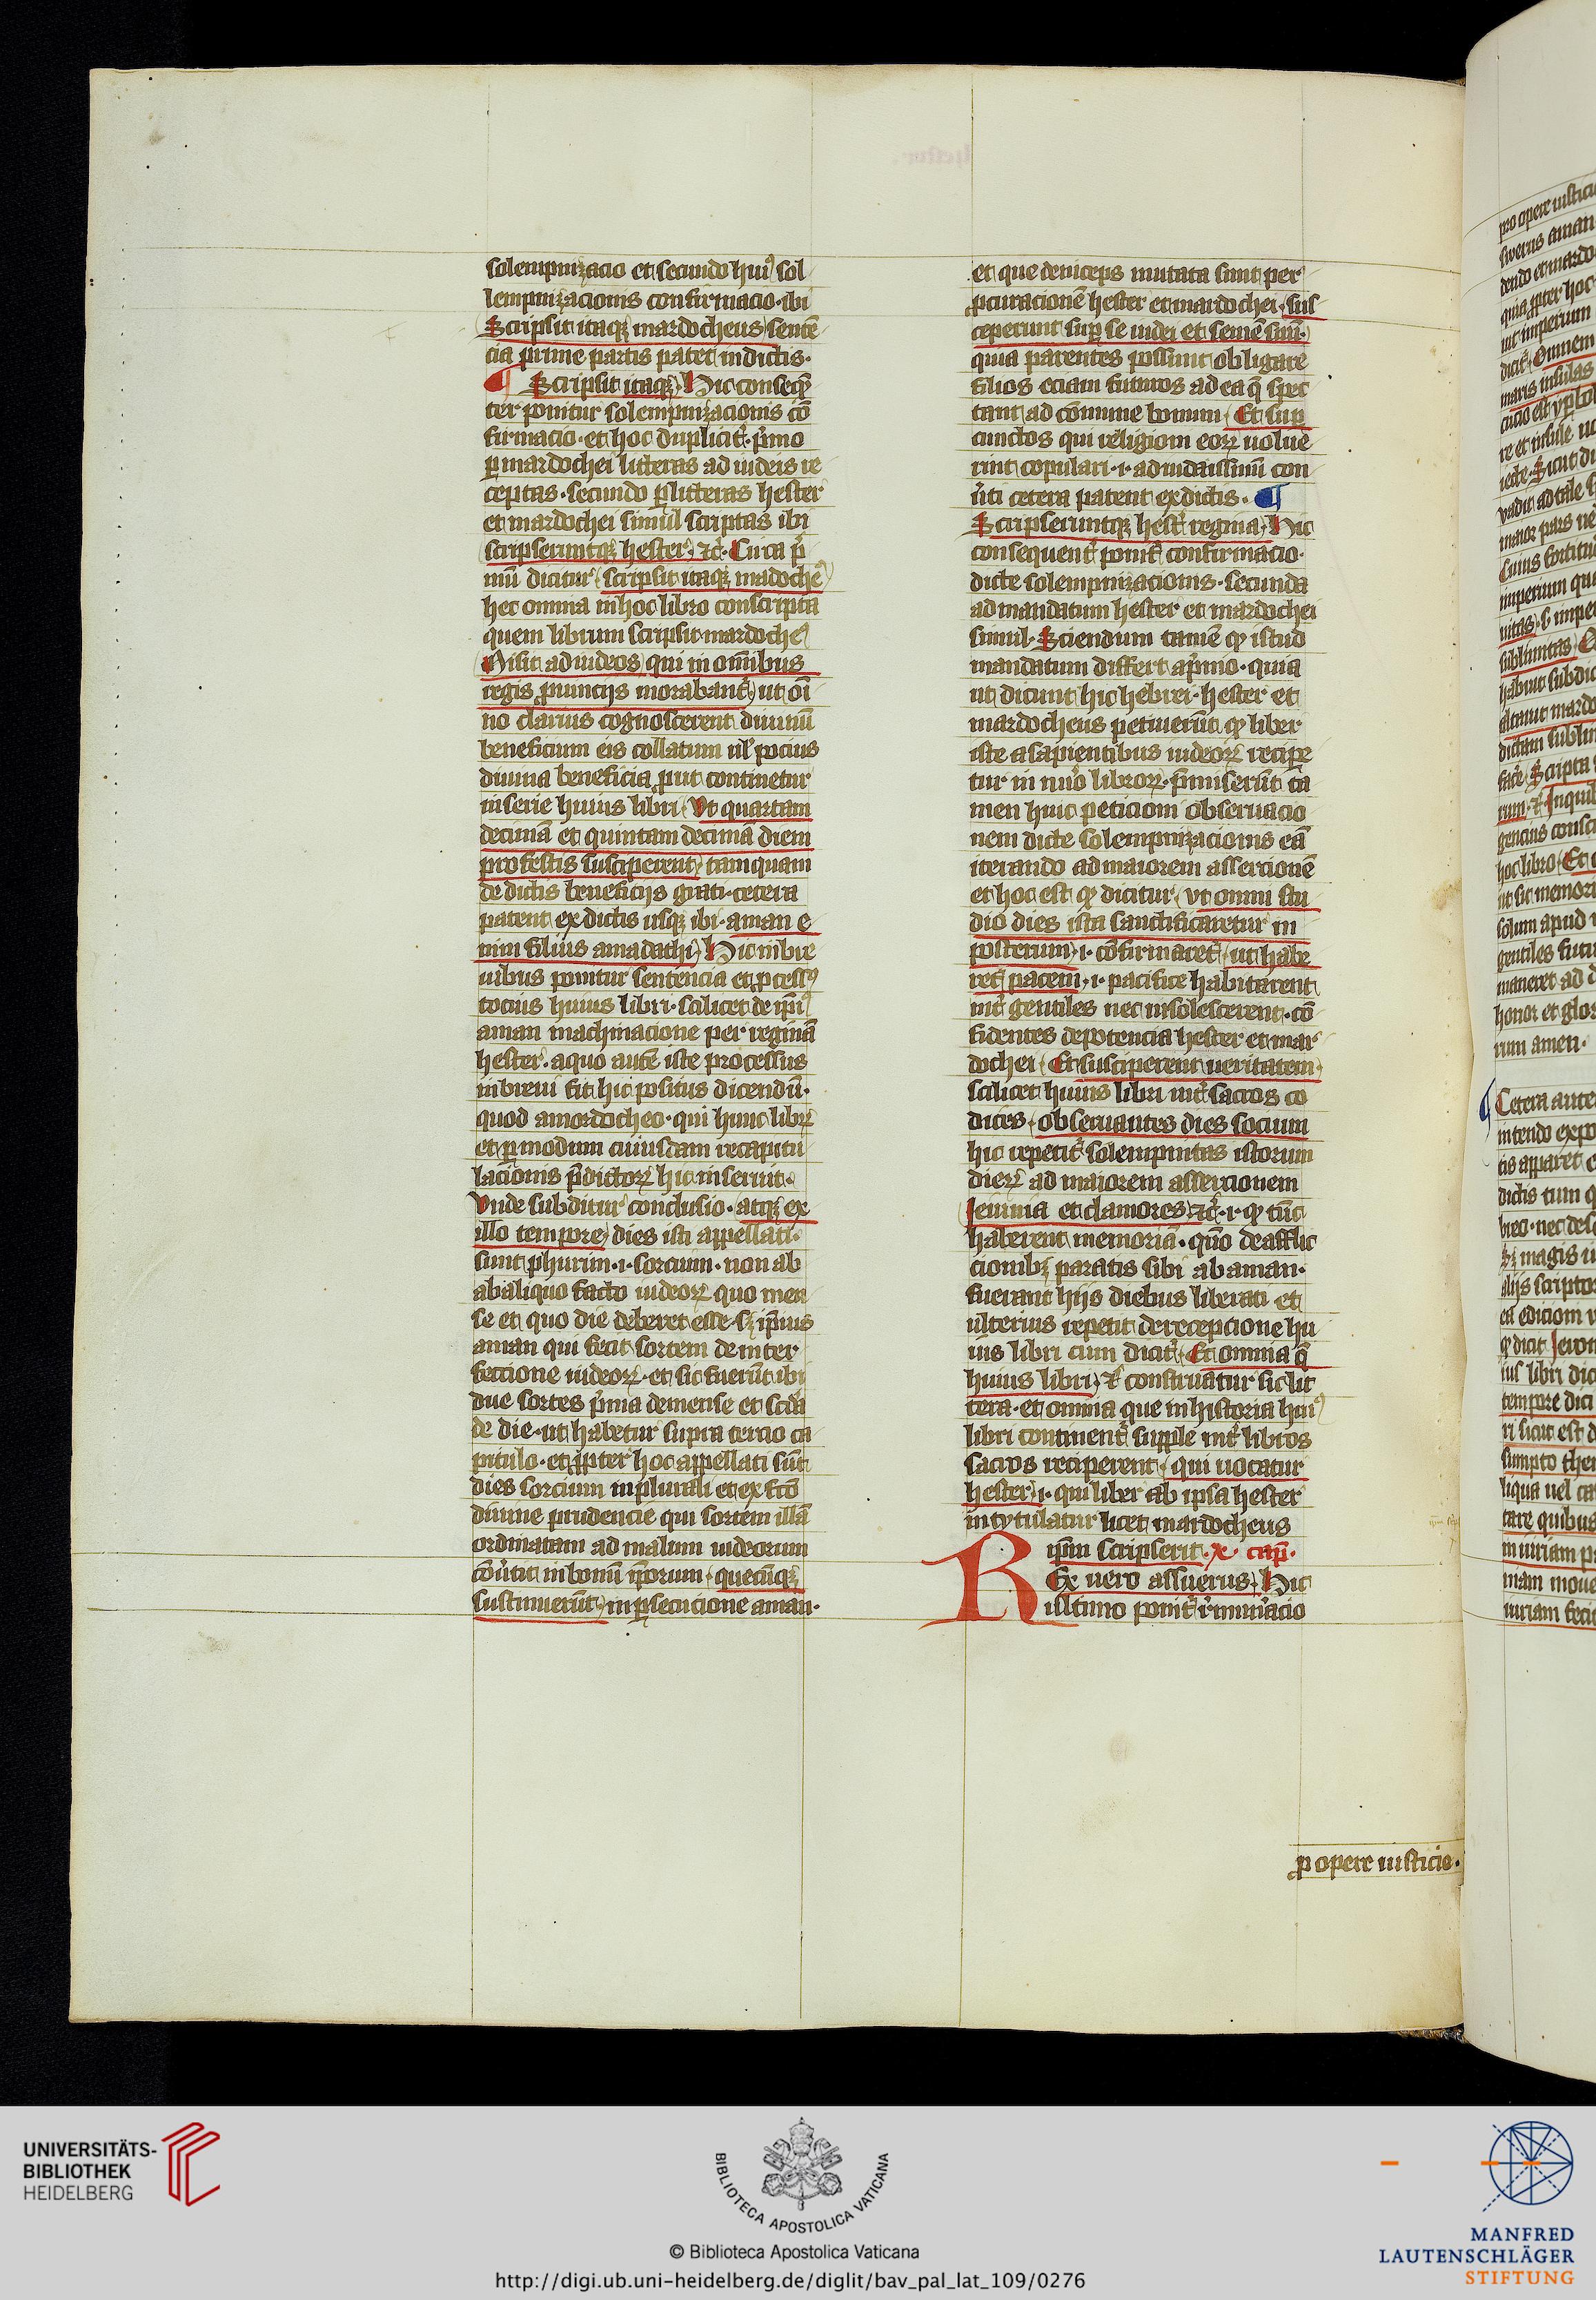 solempnizacio et secundo huiꝰ sol
lempnizacionis confirmacio · ibi
Scripsit itaqꝫ mardocheus sentē
cia prime partis patet in dictis ·
¶ Scripsit itaqꝫ Hic conseqn̄
ter ponitur solempnizacionis cō
firmacio · et hoc duplicit᷑ · p̄mo
ꝑ mardochei litteras ad iudeis re
ceptas · secundo ꝑ litteras hester
et mardochei simul scriptas ibi
scripseruntqꝫ hester ⁊c̄ · Circa p̄
mū dicitur scripsit itaqꝫ madocheꝰ
hec omnia in hoc libro conscripta
quem librum scripsit mardocheꝰ
Misit ad iudeos qui in om̄ibus
regis ꝓuincijs morabant᷑ ut oī
no clarius cognoscerent diuinū
beneficium eis collatum ul̓ pocius
diuina beneficia ꝓut continetur
in serie huius libri Vt quartam
decimā et quintam decimā diem
pro festis susciperent tamquam
de dictis beneficijs grati · cetera
patent ex dictis usqꝫ ibi · aman e
nim filius amadathi Hic in bre
uibus ponitur sentencia et ꝓcessꝰ
tocius huius libri · scilicet de ip̄iꝰ
aman machinacione per reginā
hester · a quo autē iste processus
in breui sit hic positus dicendū ·
quod a mordocheo · qui hunc libꝝ
et ꝑ modum cuiusdam recapitu
lacionis p̄dictoꝝ hic inseruit ·
Vnde subditur conclusio · atqꝫ ex
illo tempore dies isti appellati ·
sunt phurim · i · sorcium · non ab
ab aliquo facto iudeoꝝ quo men
se et quo die deberet esse · sꝫ ip̄ius
aman qui fecit sortem de inter
fectione iudeoꝝ · et sic fuerūt ibi
due sortes p̄ma de mense et scd̄a
de die · ut habetur supra tercio ca
pitulo · et ꝓpter hoc appellati sūt
dies sorcium in plurali et ex fc̄o
diuine prudencie qui sortem illā
ordinatam ad malum iudeorum
cōu̓tit in bonū ip̄orum · quecūqꝫ
sustinuerūt in ꝑsecucione aman ·
et que deinceps mutata sunt per
ꝓcuracionē hester et mardochei · sus
ceperunt suꝑ se iudei et semē suū ·
quia parentes possunt obligare
filios eciam futuros ad ea q̄ spec
tant ad cōmune bonum · Et sup
cunctos qui religioni eoꝝ uolue
rint copulari · i · ad iudaissimū con
u̓ti cetera patent ex dictis · ¶
Scripseruntqꝫ hest̓ regina Hic
consequent᷑ ponit᷑ confirmacio ·
dicte solempnizacionis · secunda
ad mandatum hester et mardochei
simul · Sciendum tamē ꝙ istud
mandatum differt a p̄mo · quia
ut dicunt hic hebrei · hester et
mardocheus petiuerūt ꝙ liber
iste a sapientibus iudeoꝝ recipe
tur in nūo libroꝝ · p̄miserūt ta
men huic peticioni obseruacio
nem dicte solempnizacionis eā
iterando ad maiorem assercionē
et hoc est ꝙ dicitur Vt omni stu
dio dies ista sanctificaretur in
posterum · i · cōfirmaret᷑ · ut habe
ret᷑ pacem · i · pacifice habitarent
int᷑ gentiles nec insolescerent · cō
fidentes de potencia hester et mar
dochei · Et susciperent ueritatem ·
scilicet huius libri int᷑ sacros co
dices · obseruantes dies socium
hic repetit᷑ solempnitas istorum
dieꝝ ad maiorem assercionem
Ieiunia et clamores ⁊c̄ · i · ꝙ tūc
haberent memoriā · quō de afflic
cionibꝫ paratis sibi ab aman ·
fuerant hijs diebus liberati et
ulterius repetit de recepcione hu
ius libri cum dicit᷑ · Et omnia q̄
huius libri ⁊ construatur sic lit
tera · et omnia que in historia huiꝰ
libri continent᷑ supple int᷑ libros
sacros reciperent · qui uocatur
hester · i · qui liber ab ipsa hester
intytulatur licet mardocheus
ip̄m scripserit · x · cap̄ ·
Rex uero assuerus Hic
ultimo ponit᷑ r̄muneracio
ꝓ opere iusticie ·
UNIVERSITÄTS-
BIBLIOTHEK
HEIDELBERG
BIBLIOTECA APOSTOLICA VATICANA
© Biblioteca Apostolica Vaticana
http://digi.ub.uni-heidelberg.de/diglit/bav_pal_lat_109/0276
MANFRED
LAUTENSCHLÄGER
STIFTUNG